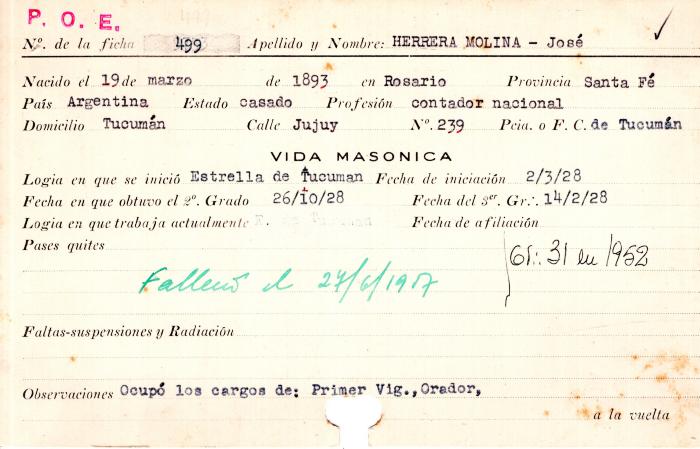 P. O. E.
Nº. de la ficha 499 Apellido y Nombre: HERRERA MOLINA - José
Nacido el 19 de marzo de 1893 en Rosario Provincia Santa Fé
País Argentina Estado casado Profesión contador nacional
Domicilio Tucumán Calle Jujuy Nº. 239 Pcia. o F. C. de Tucumán
VIDA MASONICA
Logia en que se inició Estrella de Tucuman Fecha de iniciación 2/3/28
Fecha en que obtuvo el 2º. Grado 26/10/28 Fecha del 3er. Gr.·. 14/2/28
Logia en que trabaja actualmente E. de Tucuman Fecha de afiliación
Pases quites Gr.: 31 en 1952
Falleció el 27/6/1957
Faltas-suspensiones y Radiación
Observaciones Ocupó los cargos de: Primer Vig., Orador,
a la vuelta